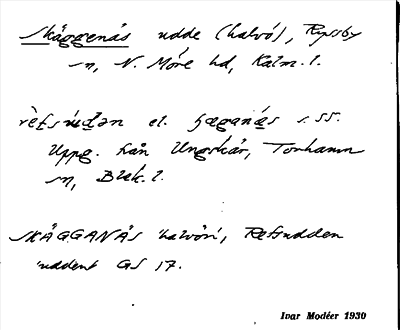 Skäggenäs udde (halvö), Ryssby
sn, N. Möre hd, Kalm. l.
el. s. ss.
Uppg. från Ungskär, Torhamn
sn, Blek. l.
SKÄGGANÄS 'halvön', Refsudden
'udden' GS 17.
Ivar Modéer 1930